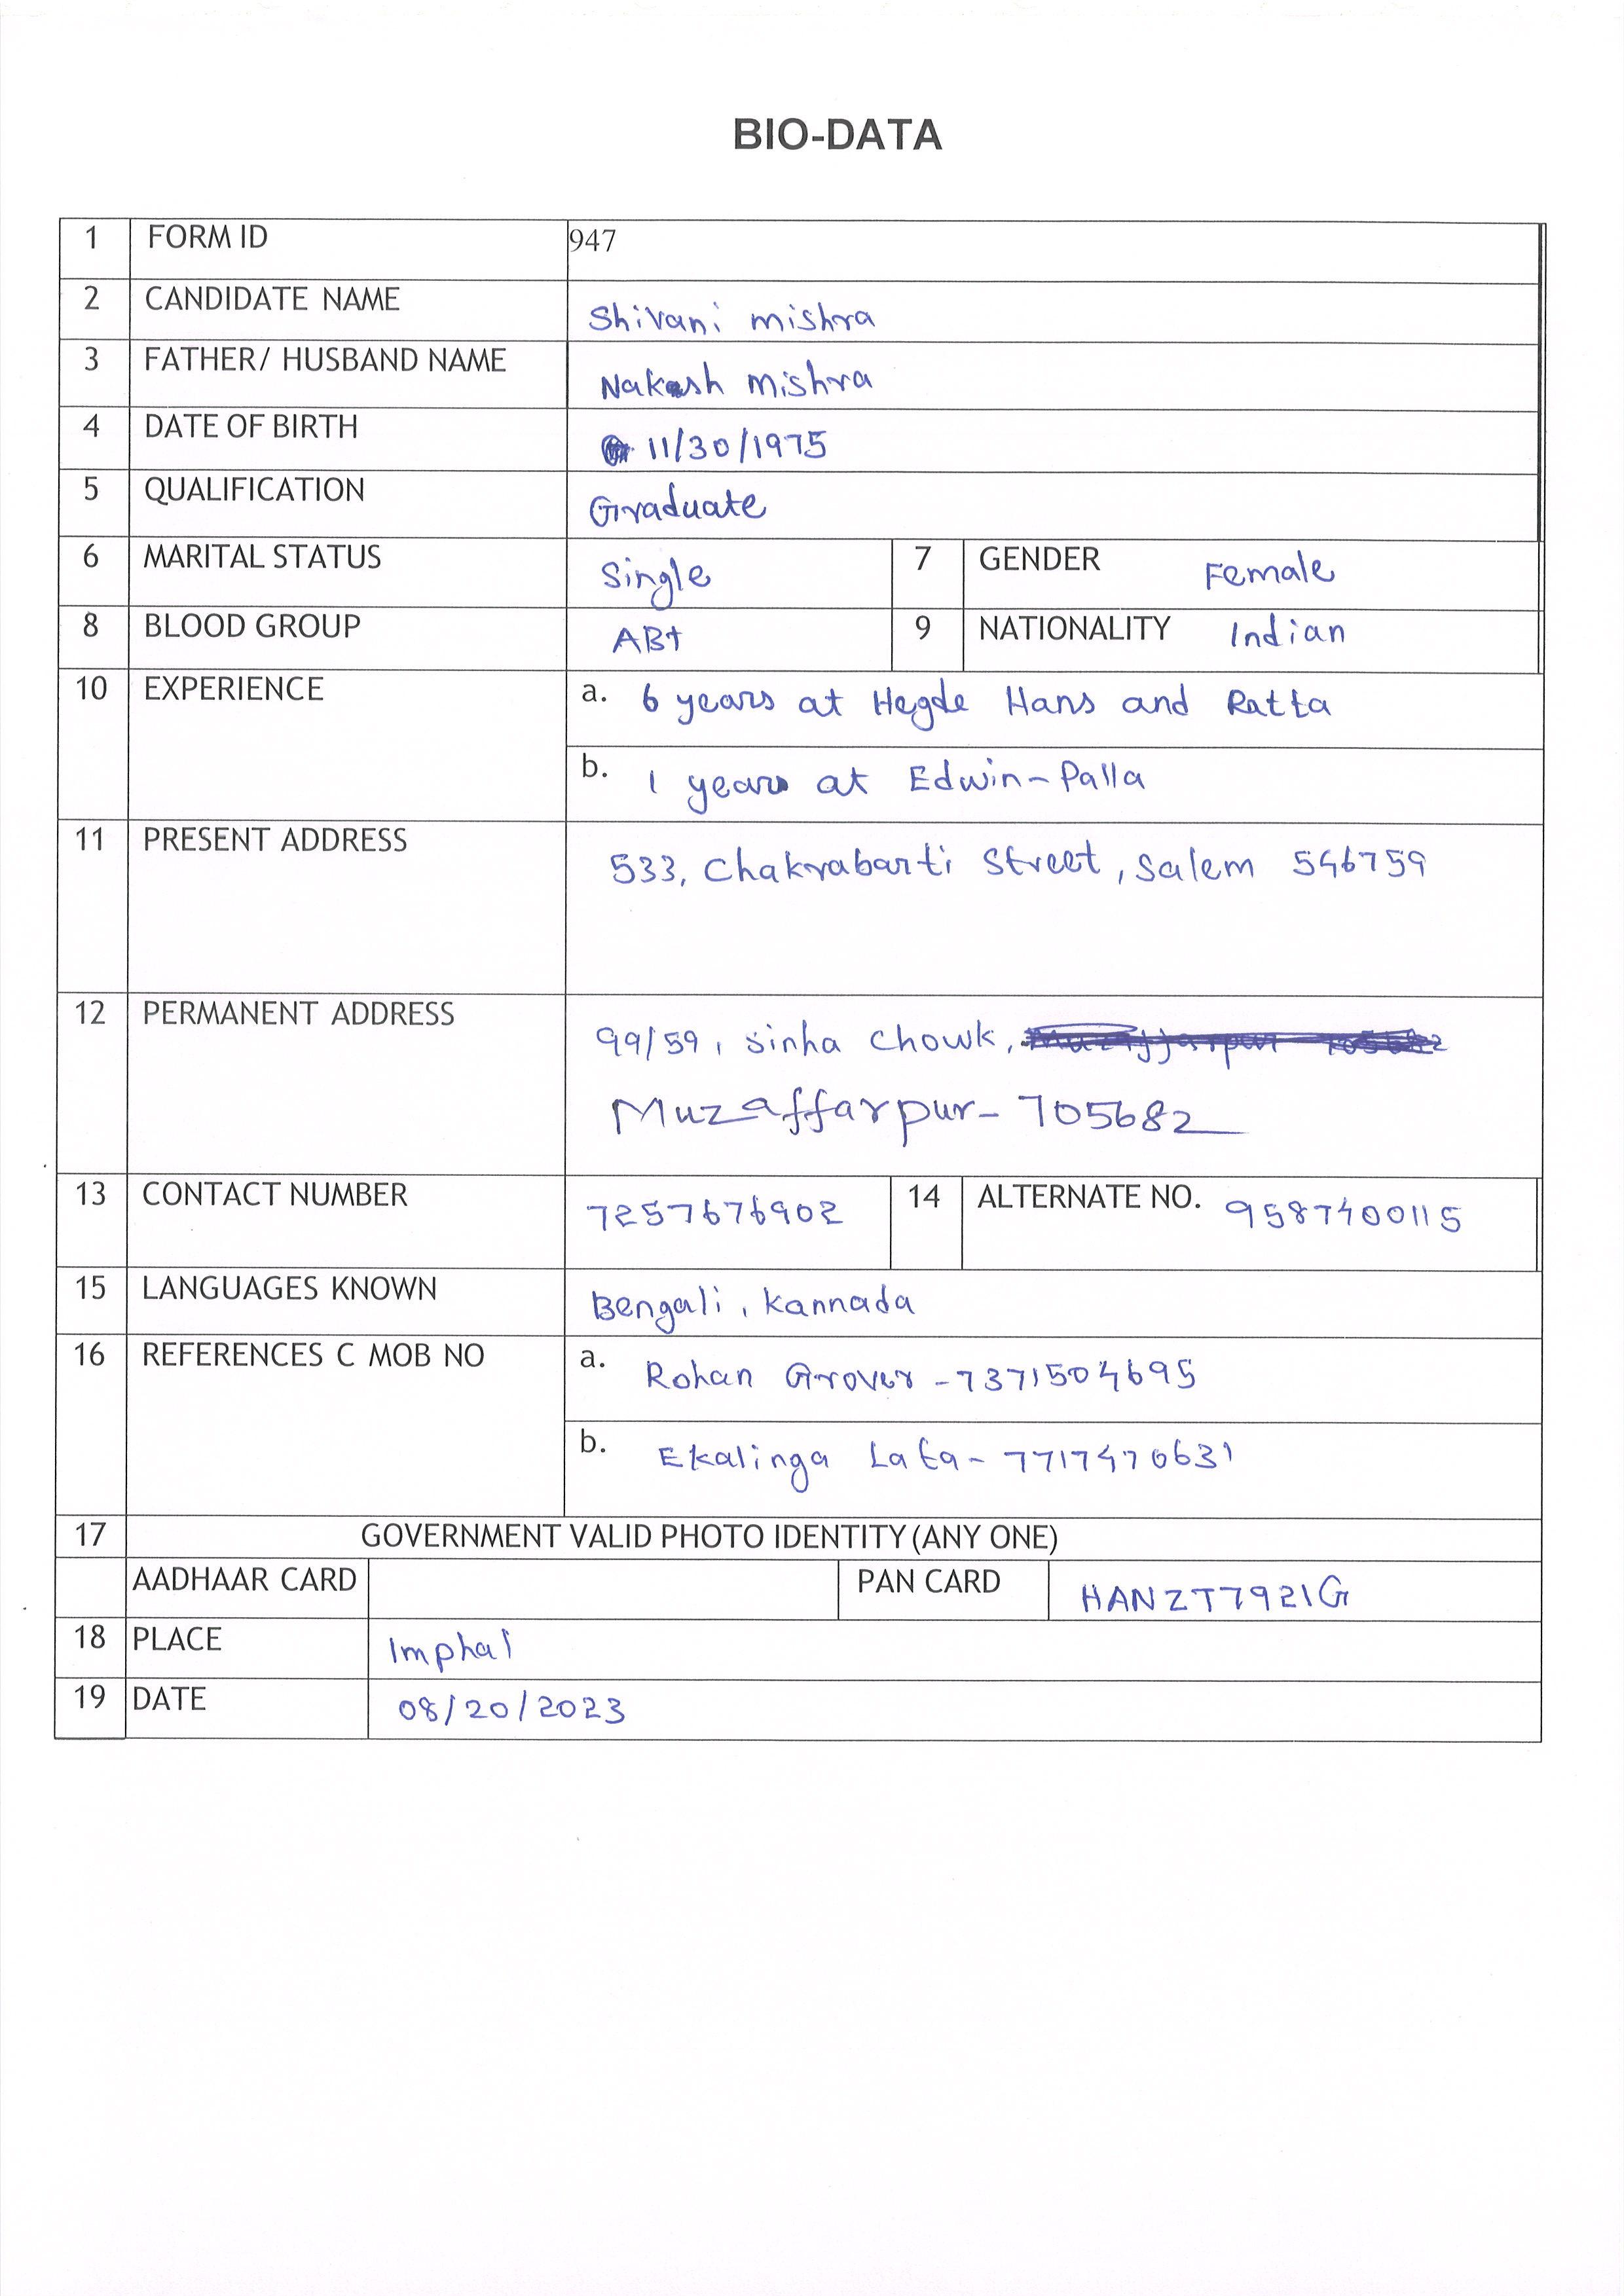 BIO-DATA
1 FORM ID 947
2 CANDIDATE NAME Shivani mishra
3 FATHER/ HUSBAND NAME Nakash Mishra
4 DATE OF BIRTH 11/30/1975
5 QUALIFICATION Graduate
6 MARITAL STATUS Single 7 GENDER Female
8 BLOOD GROUP AB+ 9 NATIONALITY Indian
10 EXPERIENCE a. 6 years at Hegde Hans and Ratta
b. 1 years at Edwin-Palla
11 PRESENT ADDRESS 533, Chakrabarti Street, Salem 546759
12 PERMANENT ADDRESS 99/59, Sinha Chowk,
Muzaffarpur- 705682
13 CONTACT NUMBER 7257676902 14 ALTERNATE NO. 9587400115
15 LANGUAGES KNOWN Bengali, Kannada
16 REFERENCES C MOB NO a. Rohan Grover -7371504695
b. Ekalinga Lata- 7717470631
17 GOVERNMENT VALID PHOTO IDENTITY (ANY ONE)
AADHAAR CARD PAN CARD HANZT7921G
18 PLACE Imphal
19 DATE 08/20/2023